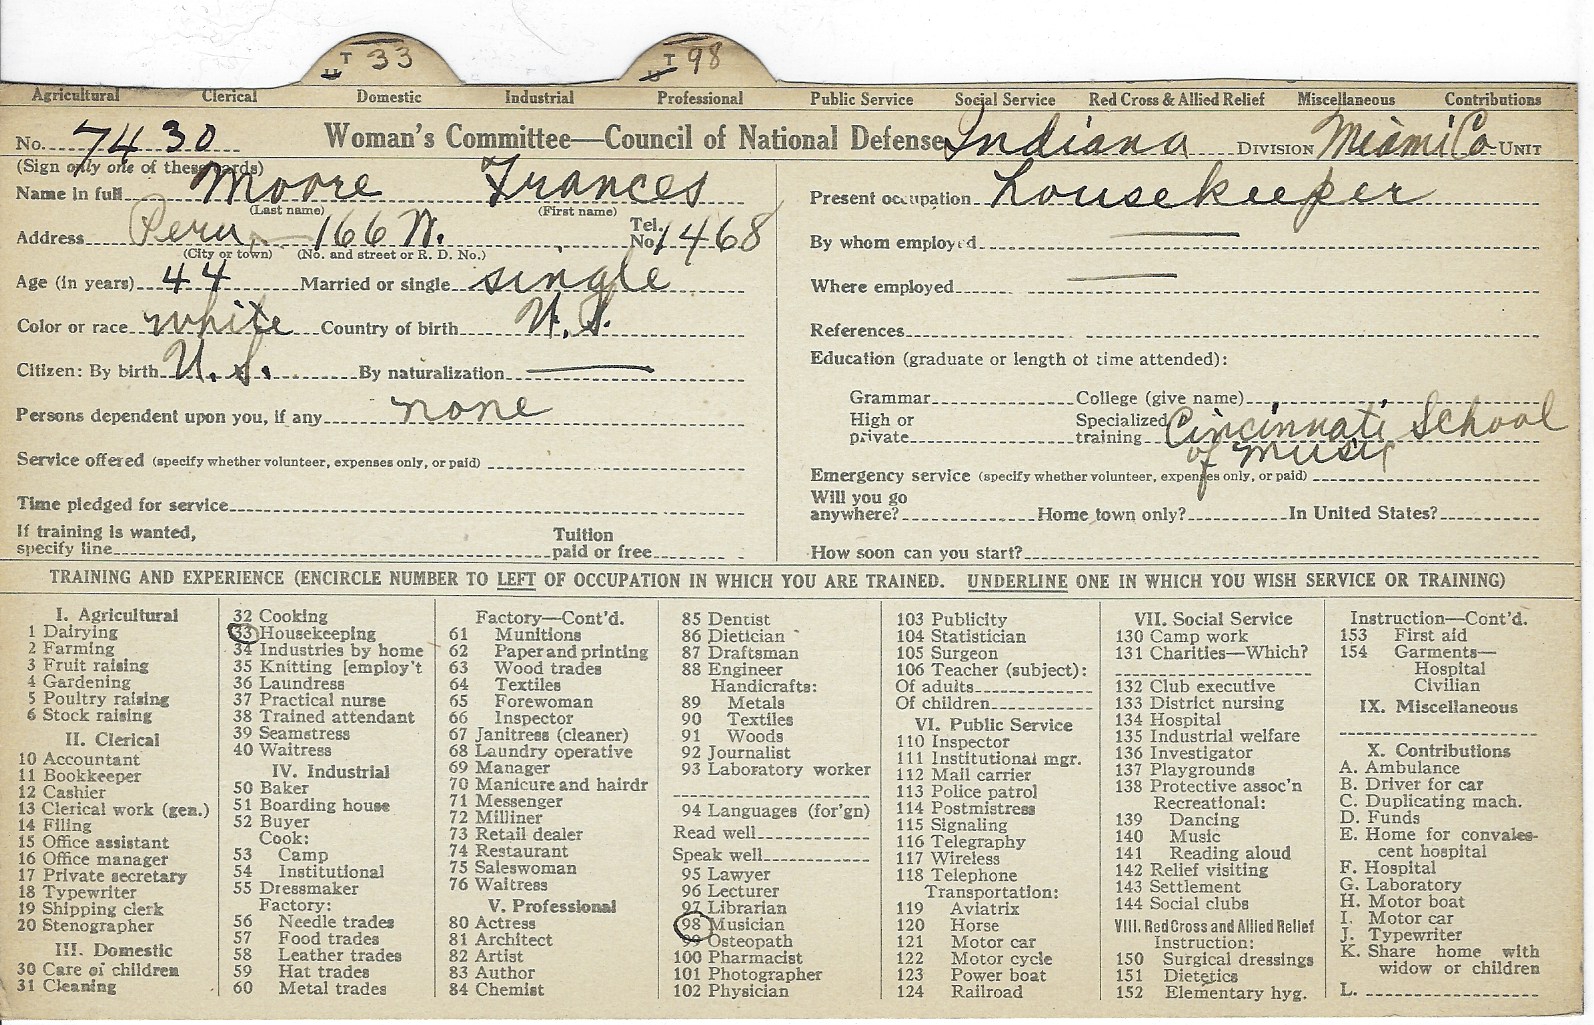 T 33 T 98
U U
Agricultural Clerical Domestic Industrial Professional Public Service Social Service Red Cross & Allied Relief Miscellaneous Contributions
No. 7430 Woman's Committee—Council of National Defense Indiana DIVISION Miami Co. UNIT
(Sign only one of these cards)
Name in full Moore Frances
(Last name) (First name)
Address Peru — 166 W. Tel. No. 1468
(City or town) (No. and street or R. D. No.)
Age (in years) 44 Married or single single
Color or race white Country of birth U.S.
Citizen: By birth U.S. By naturalization —
Persons dependent upon you, if any none
Service offered (specify whether volunteer, expenses only, or paid)
Time pledged for service
If training is wanted, specify line Tuition paid or free
Present occupation housekeeper
By whom employed —
Where employed —
References
Education (graduate or length of time attended):
Grammar College (give name)
High or private Specialized training Cincinnati School
of music
Emergency service (specify whether volunteer, expenses only, or paid)
Will you go anywhere? Home town only? In United States?
How soon can you start?
TRAINING AND EXPERIENCE (ENCIRCLE NUMBER TO LEFT OF OCCUPATION IN WHICH YOU ARE TRAINED. UNDERLINE ONE IN WHICH YOU WISH SERVICE OR TRAINING)
I. Agricultural
1 Dairying
2 Farming
3 Fruit raising
4 Gardening
5 Poultry raising
6 Stock raising
II. Clerical
10 Accountant
11 Bookkeeper
12 Cashier
13 Clerical work (gen.)
14 Filing
15 Office assistant
16 Office manager
17 Private secretary
18 Typewriter
19 Shipping clerk
20 Stenographer
III. Domestic
30 Care of children
31 Cleaning
32 Cooking
33 Housekeeping
34 Industries by home
35 Knitting [employ't
36 Laundress
37 Practical nurse
38 Trained attendant
39 Seamstress
40 Waitress
IV. Industrial
50 Baker
51 Boarding house
52 Buyer
Cook:
53 Camp
54 Institutional
55 Dressmaker
Factory:
56 Needle trades
57 Food trades
58 Leather trades
59 Hat trades
60 Metal trades
Factory—Cont'd.
61 Munitions
62 Paper and printing
63 Wood trades
64 Textiles
65 Forewoman
66 Inspector
67 Janitress (cleaner)
68 Laundry operative
69 Manager
70 Manicure and hairdr
71 Messenger
72 Milliner
73 Retail dealer
74 Restaurant
75 Saleswoman
76 Waitress
V. Professional
80 Actress
81 Architect
82 Artist
83 Author
84 Chemist
85 Dentist
86 Dietician
87 Draftsman
88 Engineer
Handicrafts:
89 Metals
90 Textiles
91 Woods
92 Journalist
93 Laboratory worker
94 Languages (for'gn)
Read well
Speak well
95 Lawyer
96 Lecturer
97 Librarian
98 Musician
99 Osteopath
100 Pharmacist
101 Photographer
102 Physician
103 Publicity
104 Statistician
105 Surgeon
106 Teacher (subject):
Of adults
Of children
VI. Public Service
110 Inspector
111 Institutional mgr.
112 Mail carrier
113 Police patrol
114 Postmistress
115 Signaling
116 Telegraphy
117 Wireless
118 Telephone
Transportation:
119 Aviatrix
120 Horse
121 Motor car
122 Motor cycle
123 Power boat
124 Railroad
VII. Social Service
130 Camp work
131 Charities—Which?
132 Club executive
133 District nursing
134 Hospital
135 Industrial welfare
136 Investigator
137 Playgrounds
138 Protective assoc'n
Recreational:
139 Dancing
140 Music
141 Reading aloud
142 Relief visiting
143 Settlement
144 Social clubs
VIII. Red Cross and Allied Relief
Instruction:
150 Surgical dressings
151 Dietetics
152 Elementary hyg.
Instruction—Cont'd.
153 First aid
154 Garments—
Hospital
Civilian
IX. Miscellaneous
X. Contributions
A. Ambulance
B. Driver for car
C. Duplicating mach.
D. Funds
E. Home for convales-
cent hospital
F. Hospital
G. Laboratory
H. Motor boat
I. Motor car
J. Typewriter
K. Share home with
widow or children
L.